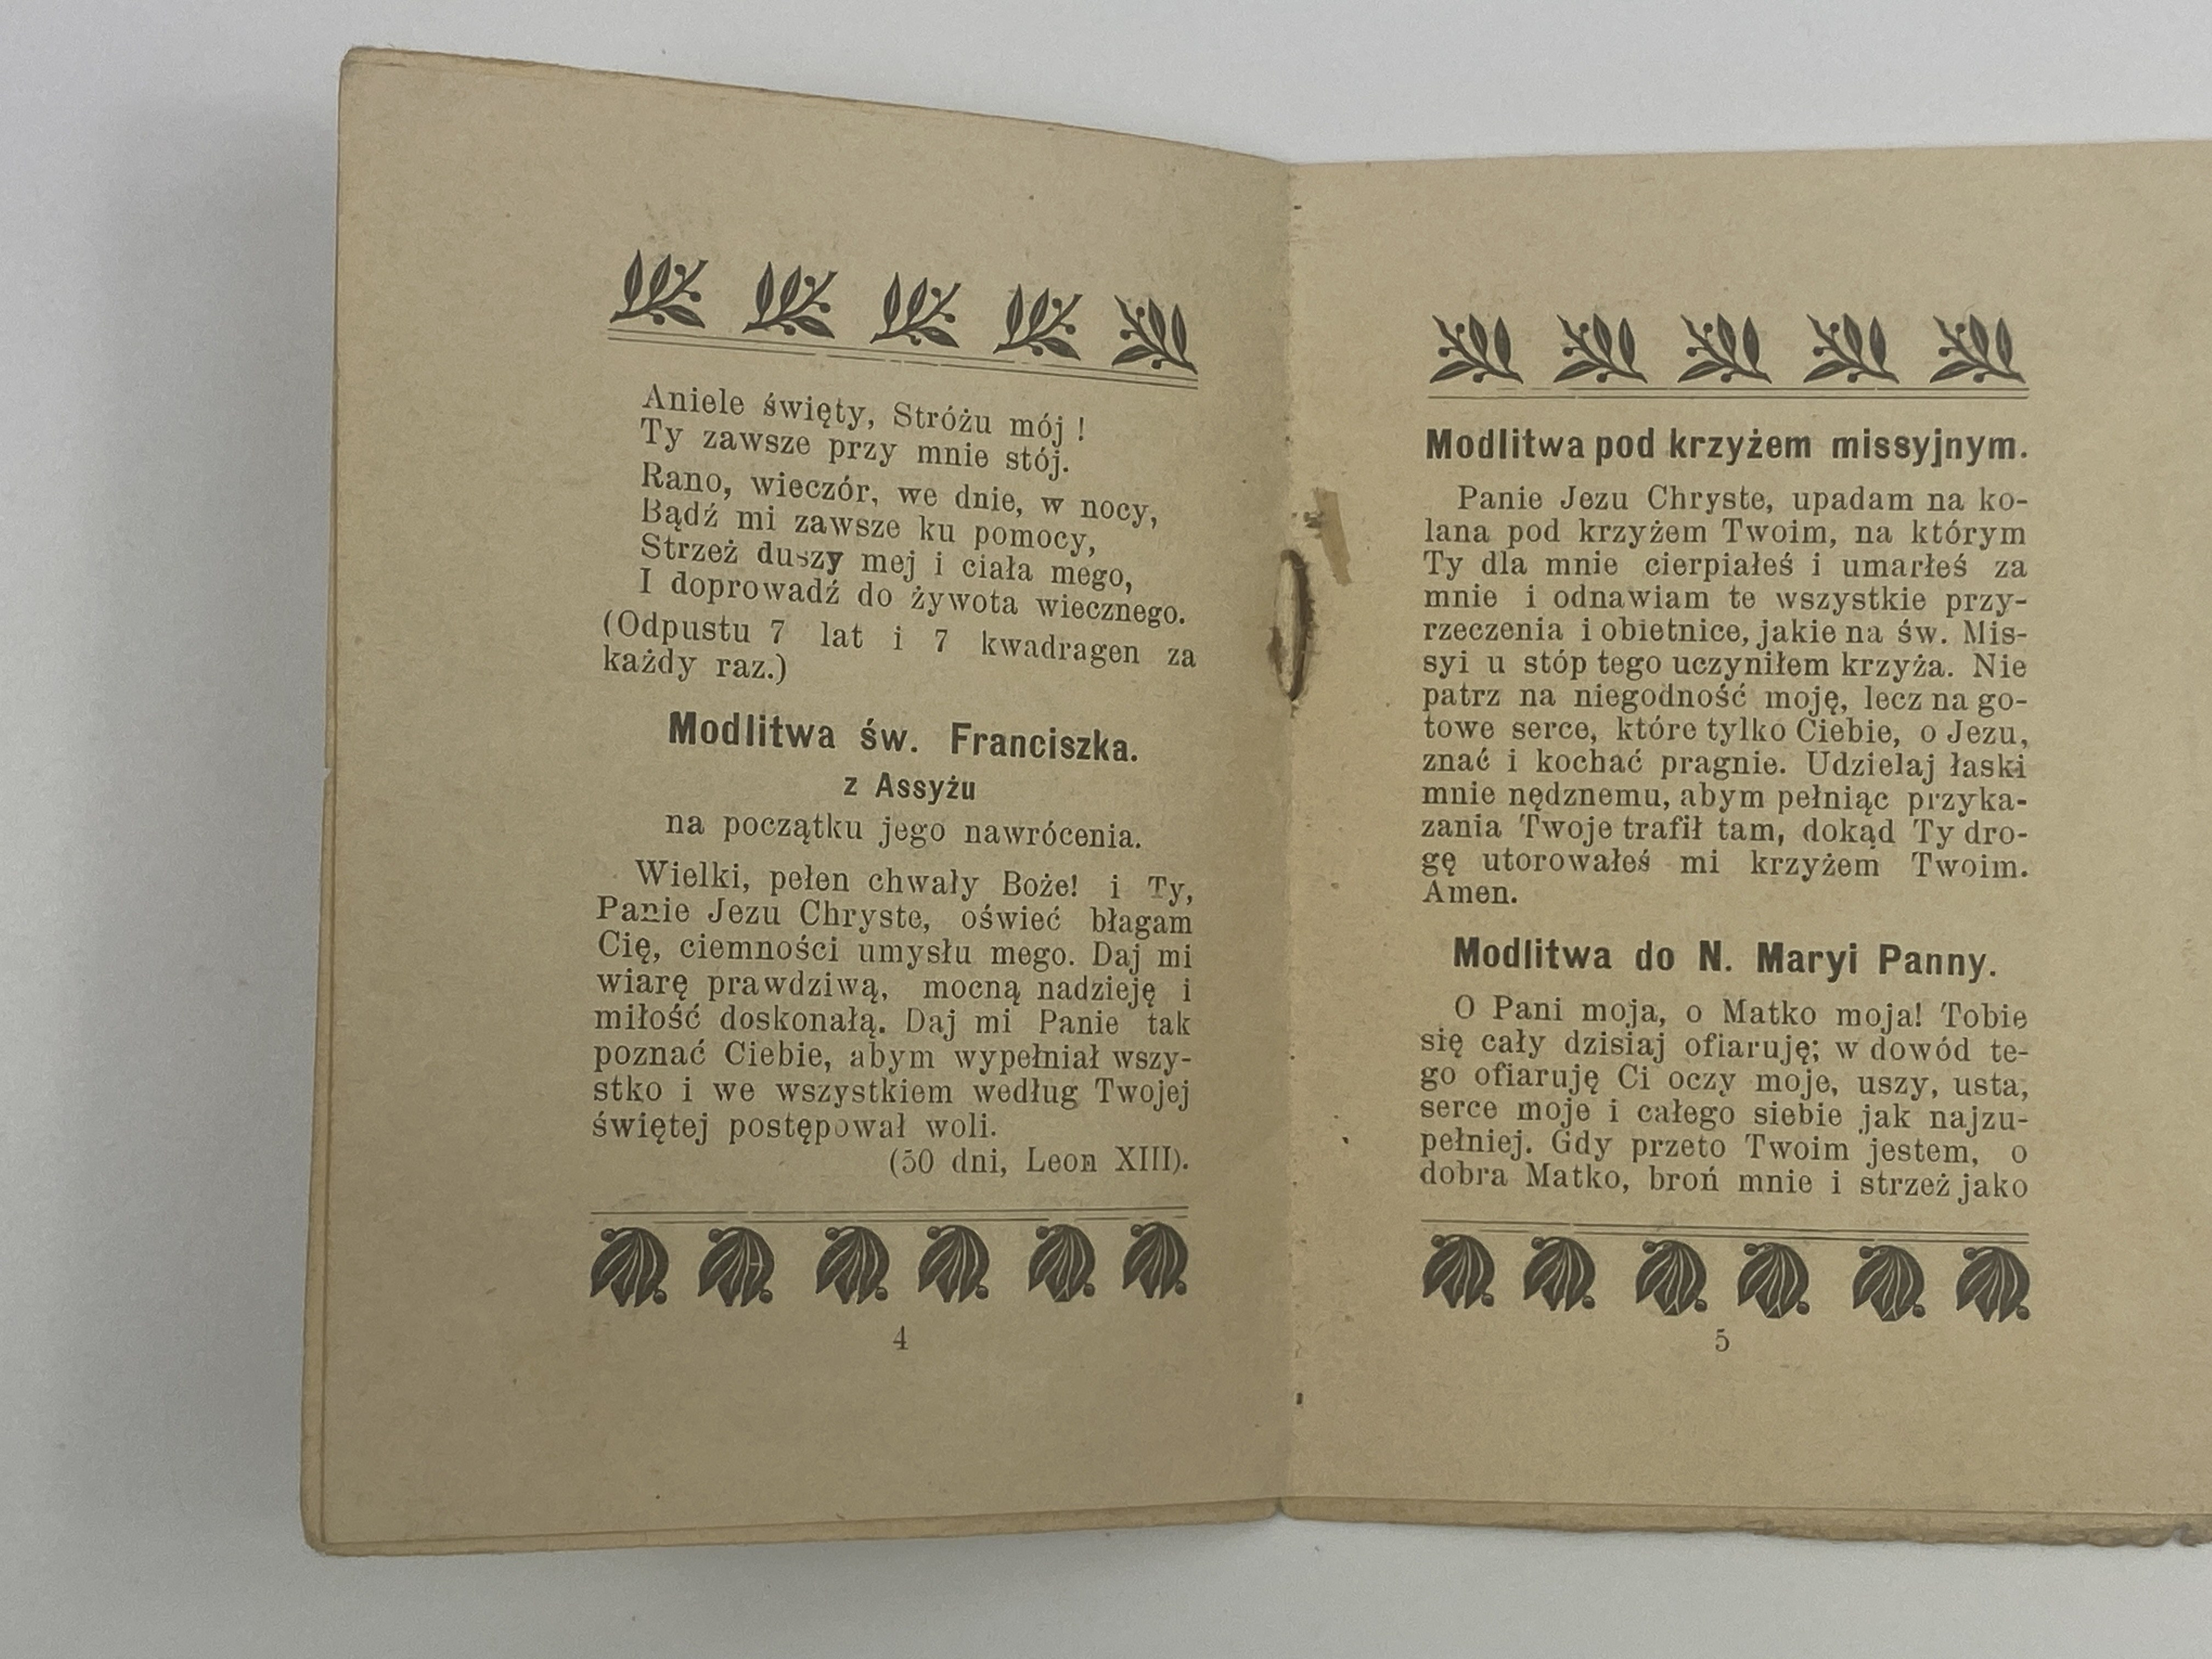 Aniele święty, Stróżu mój !
Ty zawsze przy mnie stój.
Rano, wieczór, we dnie, w nocy,
Bądź mi zawsze ku pomocy,
Strzeż duszy mej i ciała mego,
I doprowadź do żywota wiecznego.
(Odpustu 7 lat i 7 kwadragen za
każdy raz.)
Modlitwa św. Franciszka.
z Assyżu
na początku jego nawrócenia.
Wielki, pełen chwały Boże! i Ty,
Panie Jezu Chryste, oświeć błagam
Cię, ciemności umysłu mego. Daj mi
wiarę prawdziwą, mocną nadzieję i
miłość doskonałą. Daj mi Panie tak
poznać Ciebie, abym wypełniał wszy-
stko i we wszystkiem według Twojej
świętej postępował woli.
(50 dni, Leon XIII).
4
Modlitwa pod krzyżem missyjnym.
Panie Jezu Chryste, upadam na ko-
lana pod krzyżem Twoim, na którym
Ty dla mnie cierpiałeś i umarłeś za
mnie i odnawiam te wszystkie przy-
rzeczenia i obietnice, jakie na św. Mis-
syi u stóp tego uczyniłem krzyża. Nie
patrz na niegodność moję, lecz na go-
towe serce, które tylko Ciebie, o Jezu,
znać i kochać pragnie. Udzielaj łaski
mnie nędznemu, abym pełniąc przyka-
zania Twoje trafił tam, dokąd Ty dro-
gę utorowałeś mi krzyżem Twoim.
Amen.
Modlitwa do N. Maryi Panny.
O Pani moja, o Matko moja! Tobie
się cały dzisiaj ofiaruję; w dowód te-
go ofiaruję Ci oczy moje, uszy, usta,
serce moje i całego siebie jak najzu-
pełniej. Gdy przeto Twoim jestem, o
dobra Matko, broń mnie i strzeż jako
5